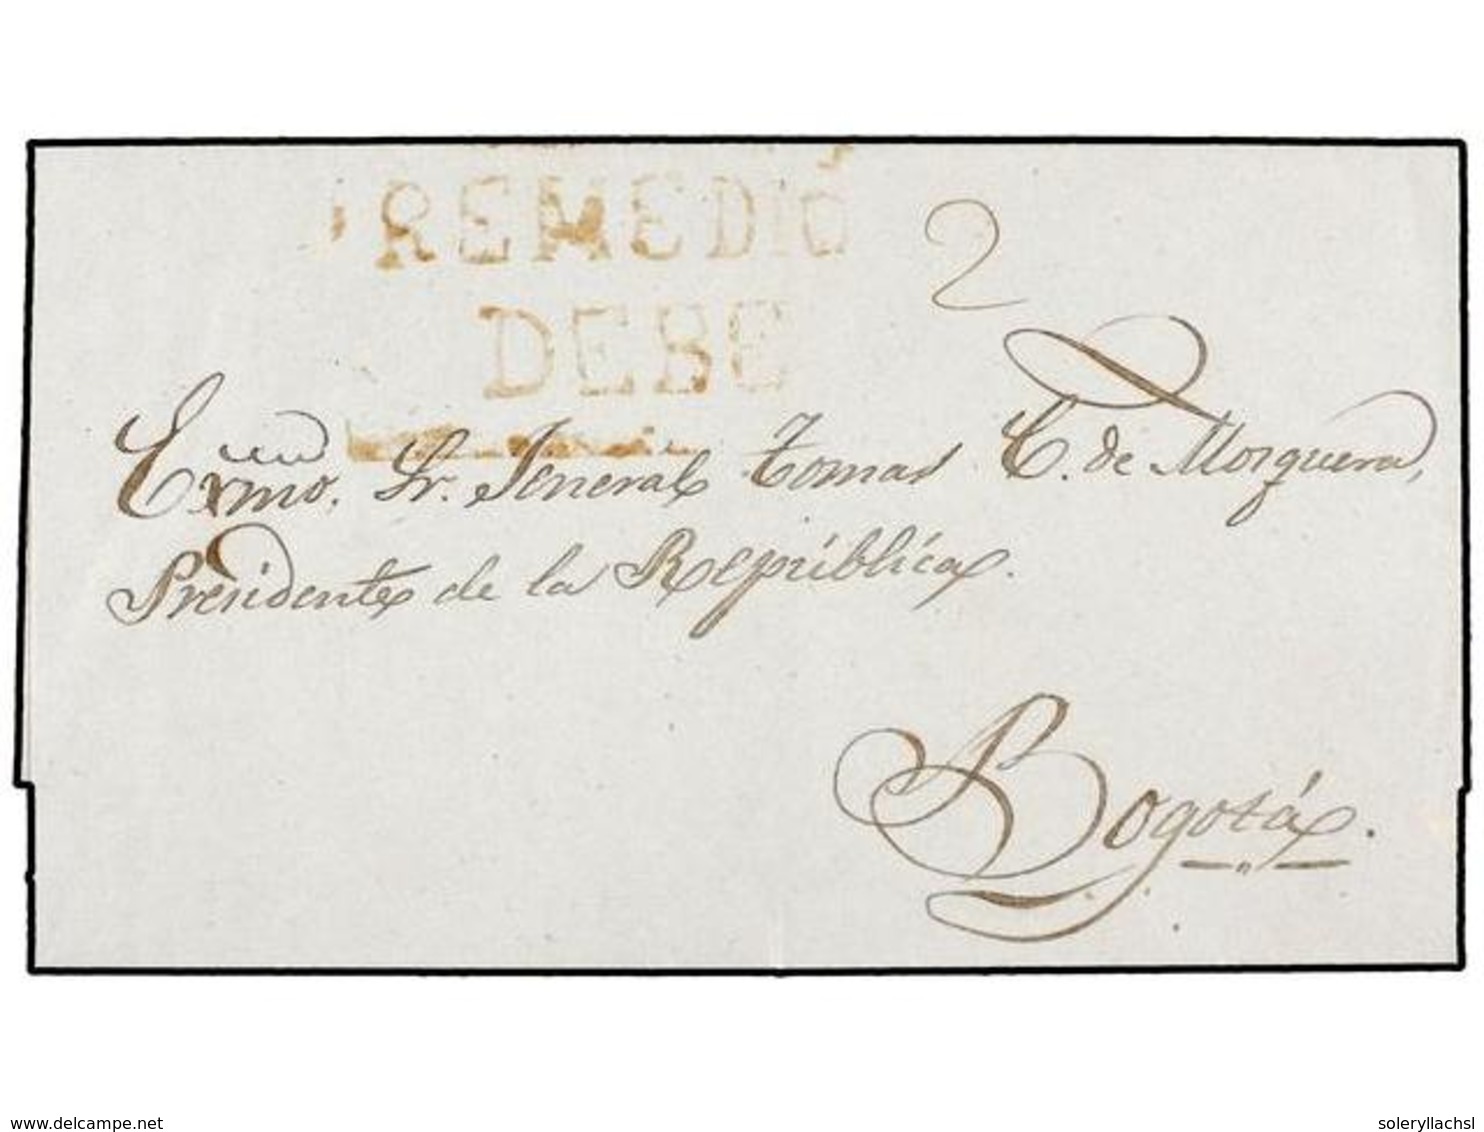 REMEDIÓ
2
DEBE
Exmo. Sr. Jeneral Tomas C. de Mosquera,
Presidente de la República.
Bogotá.
delcampe.net
soleryllachsl